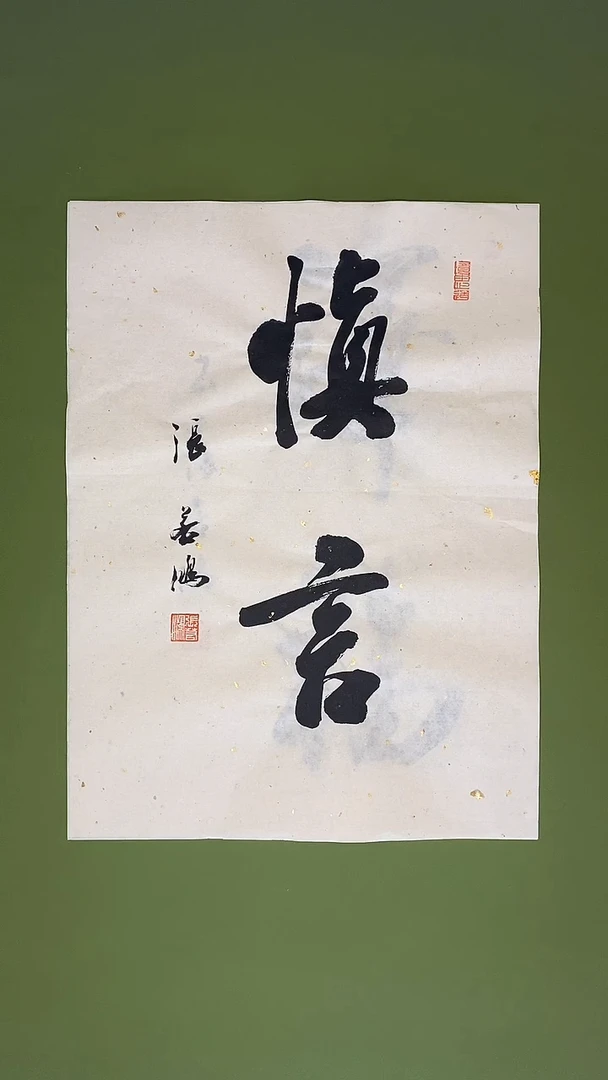 慎言
張若鴻